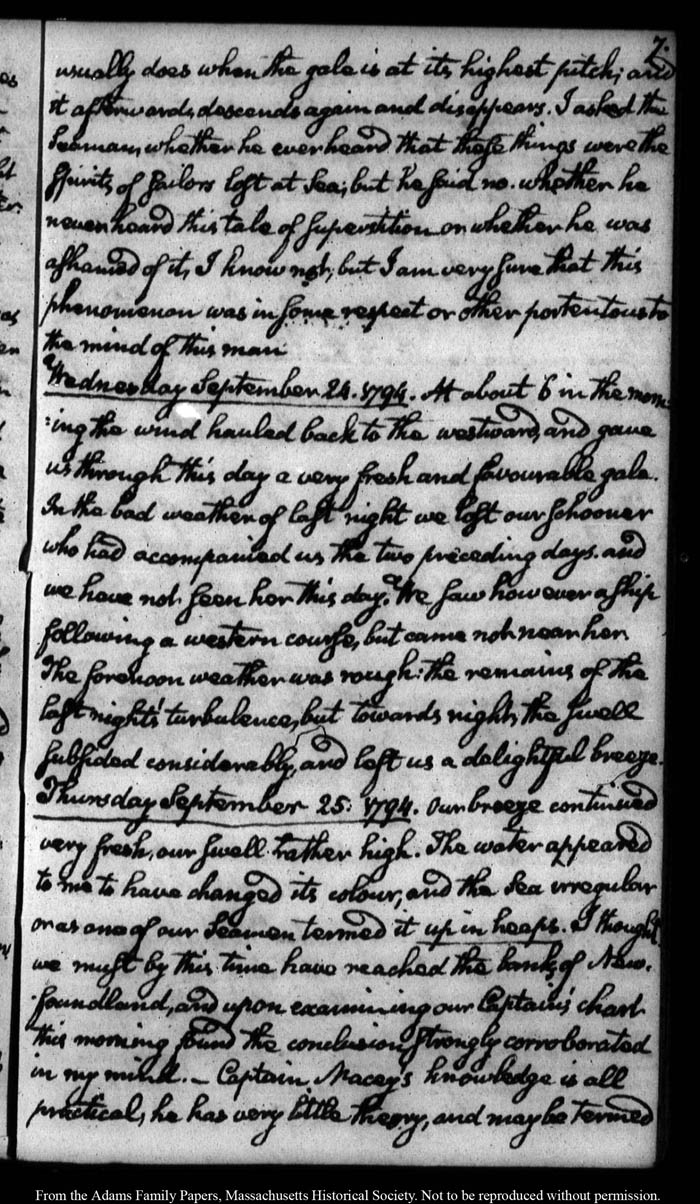 7.
usually does when the gale is at its highest pitch; and
it afterwards descends again and disappears. I asked the
Seaman, whether he ever heard that these things were the
Spirits, of Sailors lost at Sea; but he said no. whether he
never heard this tale of superstition or whether he was
ashamed of it, I know not; but I am very sure that this
phenomenon was in some respect or other portentous to
the mind of this man
Wednesday September 24. 1794. At about 6 in the morn-
:ing the wind hauled back to the westward, and gave
us through this day a very fresh and favourable gale.
In the bad weather of last night we lost our schooner
who had accompanied us the two preceding days. and
we have not seen her this day. We saw however a ship
following a western course, but came not near her.
The forenoon weather was rough: the remains of the
last night's turbulence, but towards night, the swell
subsided considerably, and left us a delightful breeze.
Thursday September 25. 1794. Our breeze continued
very fresh, our swell rather high. The water appeared
to me to have changed its colour, and the Sea irregular
or as one of our Seamen termed it up in heaps. I thought
we must by this time have reached the banks of New.
-foundland, and upon examining our Captain's chart
this morning found the conclusion strongly corroborated
in my mind. – Captain Macey's knowledge is all
practical, he has very little theory, and may be termed
From the Adams Family Papers, Massachusetts Historical Society. Not to be reproduced without permission.